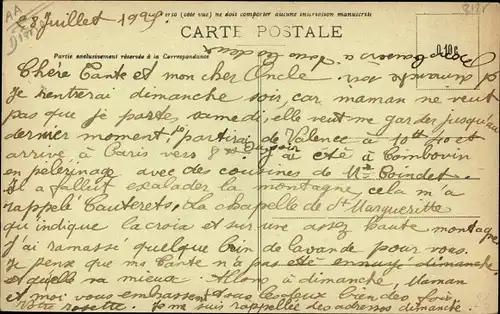 8 Juillet
CARTE POSTALE
Partie exclusivement réservée à la Correspondance
Chère Tante et mon cher Oncle
Je rentrerai dimanche soir, car maman ne veut
pas que je parte samedi, elle veut me garder jusqu'au
dernier moment, je partirai de Valence à 10h 10 et
arrive à Paris vers 8h du soir j'ai été à Combovin
en pèlerinage avec des cousines de Me Coindet.
Il a fallut escalader la montagne, cela m'a
rappelé Cauterets, la chapelle de Ste Marguerite
qu'indique la croix et sur une assez haute montagne
J'ai ramassé quelque brin de lavande pour vous.
Je pense que ma Tante n'a pas été ennuyé dimanche
et qu'elle va mieux. Allons à dimanche, Maman
et moi vous embrassent tous les deux bien des fois
Votre rosette. Je me suis rappellée des adresses dimanche.